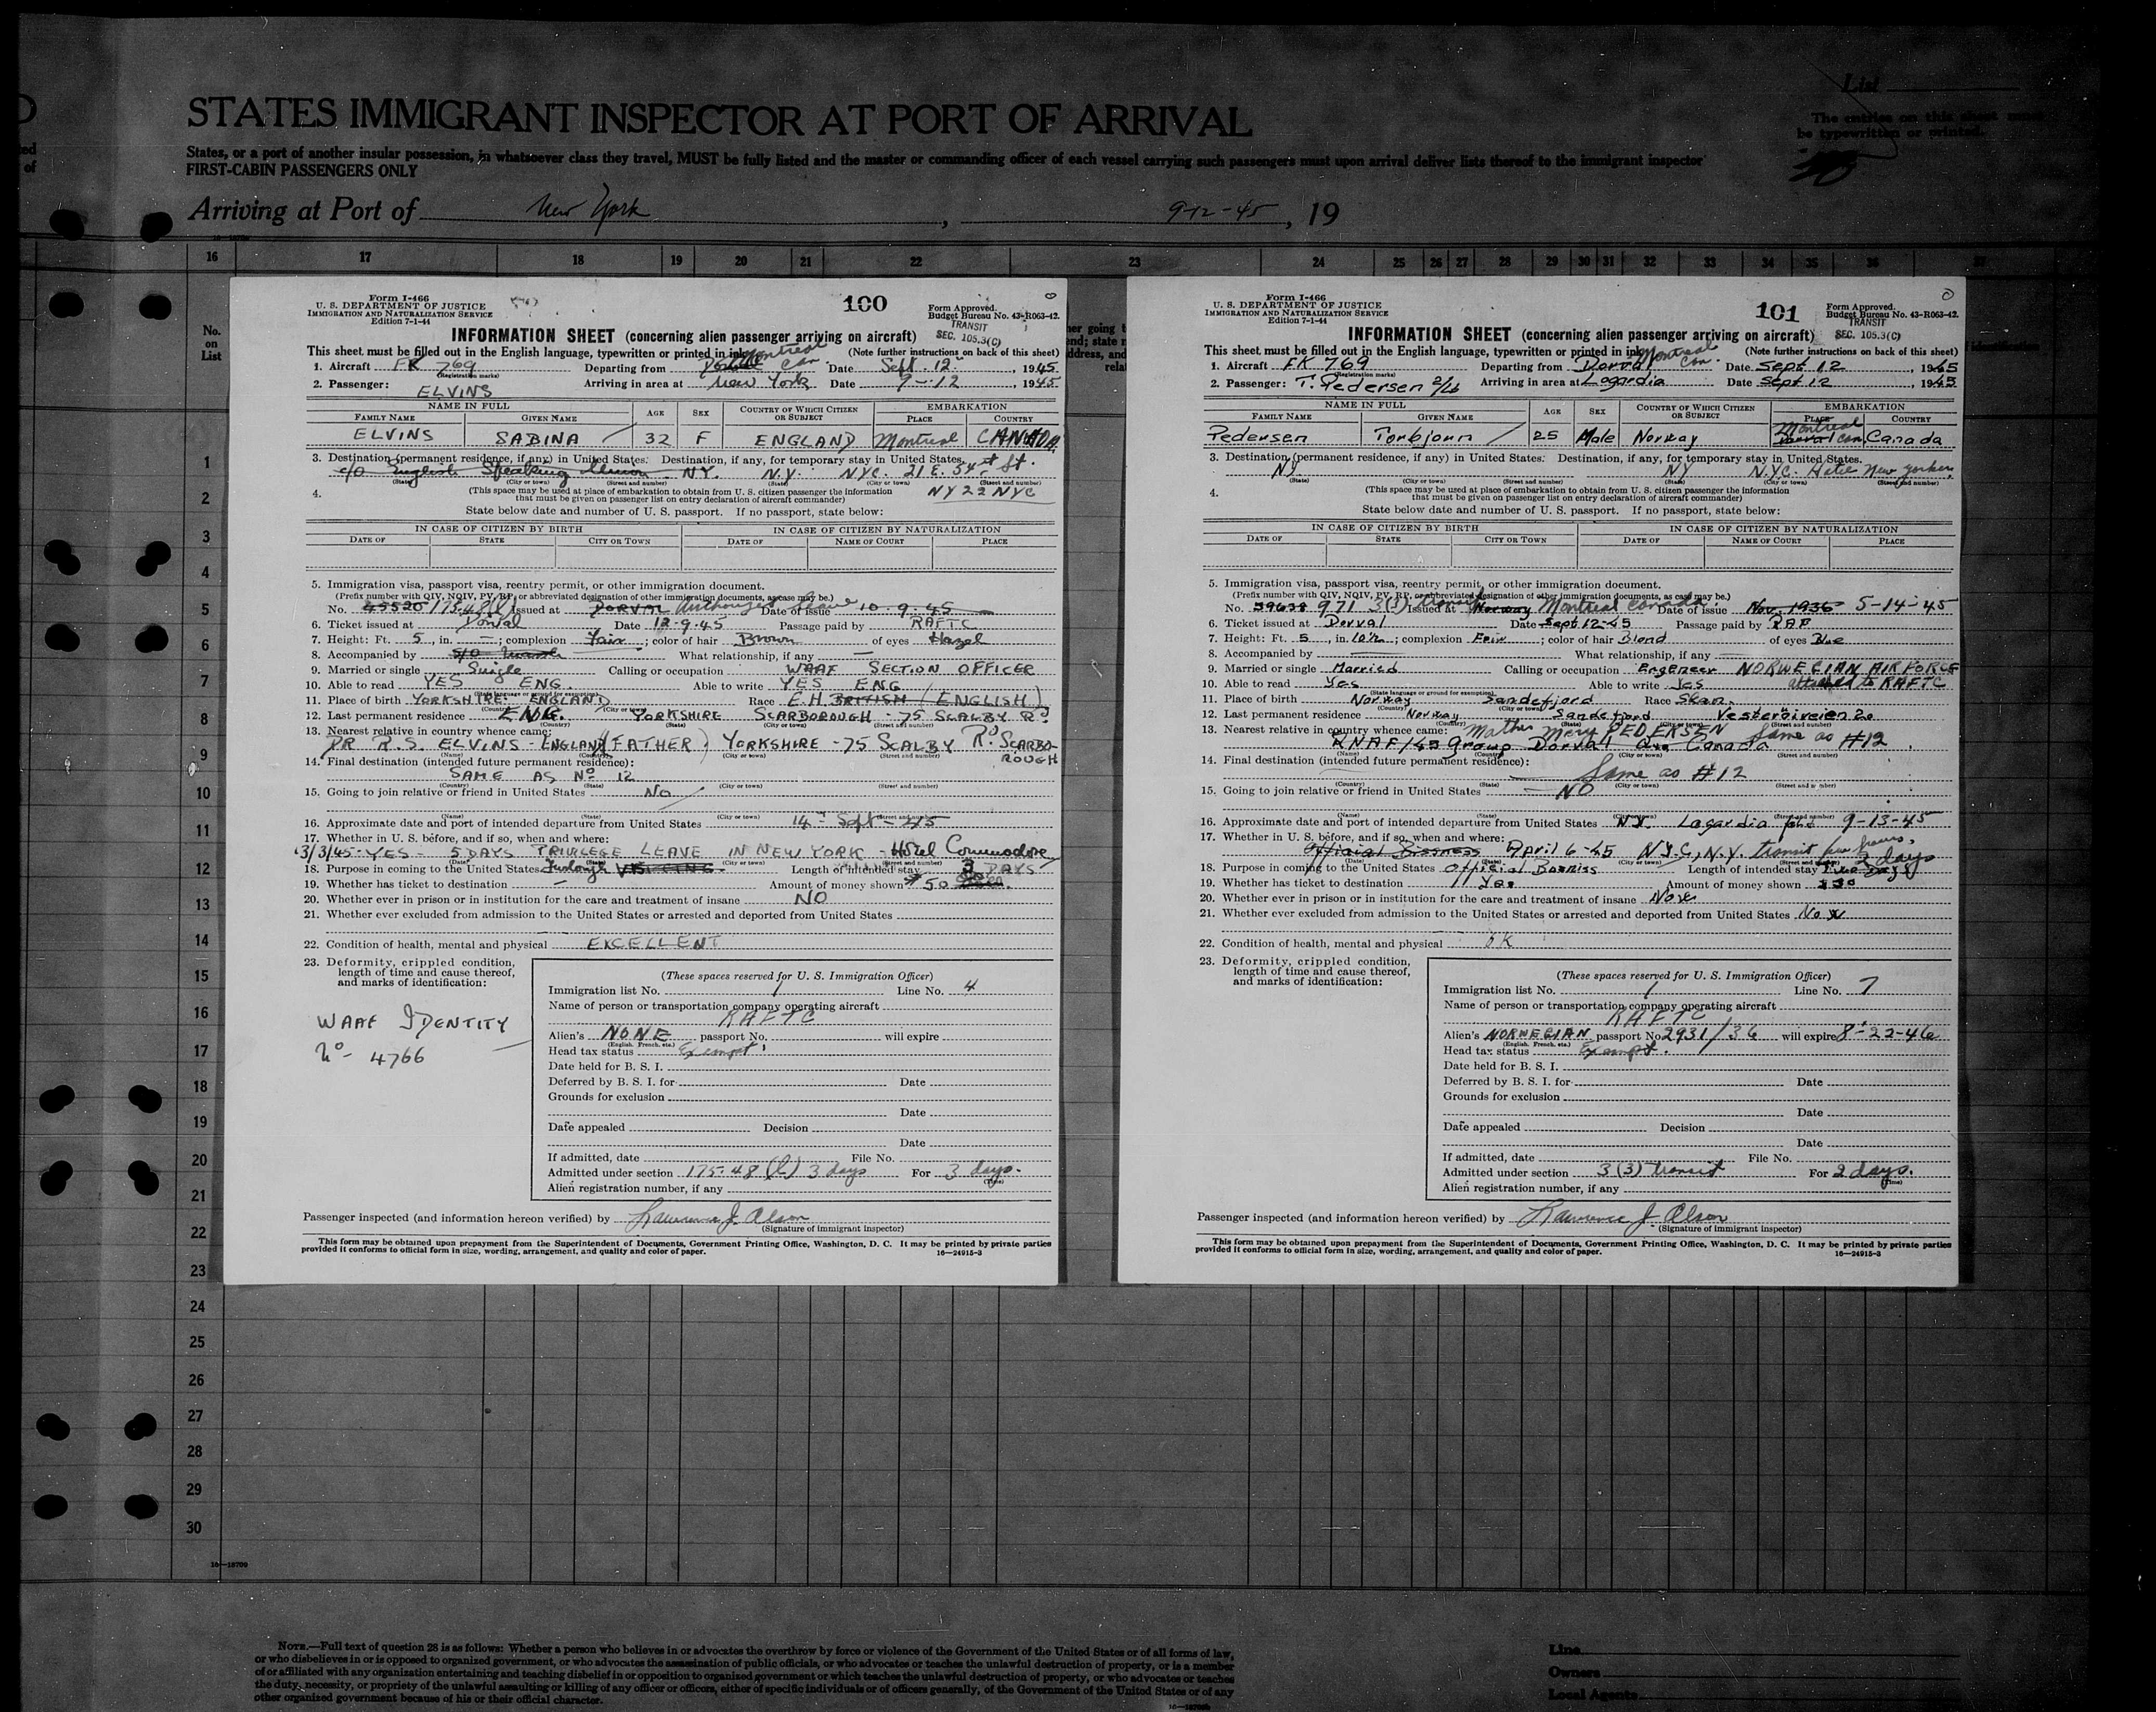 List
STATES IMMIGRANT INSPECTOR AT PORT OF ARRIVAL
The entries on this sheet must
be typewritten or printed.
States, or a port of another insular possession, in whatsoever class they travel, MUST be fully listed and the master or commanding officer of each vessel carrying such passengers must upon arrival deliver lists thereof to the immigrant inspector
FIRST-CABIN PASSENGERS ONLY
Arriving at Port of New York, 9-12-45, 19
16 17 18 19 20 21 22 23 24 25 26 27 28 29 30 31 32 33 34 35 36 37
No.
on
List
1
2
3
4
5
6
7
8
9
10
11
12
13
14
15
16
17
18
19
20
21
22
23
24
25
26
27
28
29
30
16—18709
Form I-466
U. S. DEPARTMENT OF JUSTICE
IMMIGRATION AND NATURALIZATION SERVICE
Edition 7-1-44
100
Form Approved.
Budget Bureau No. 43-R063-42.
TRANSIT
SEC. 105.3(C)
INFORMATION SHEET (concerning alien passenger arriving on aircraft)
This sheet must be filled out in the English language, typewritten or printed in ink. (Note further instructions on back of this sheet)
1. Aircraft FK 769 (Registration marks) Departing from Montreal Can. Date Sept. 12, 1945
2. Passenger: ELVINS Arriving in area at New York Date 9-12, 1945
NAME IN FULL AGE SEX COUNTRY OF WHICH CITIZEN OR SUBJECT EMBARKATION
FAMILY NAME GIVEN NAME PLACE COUNTRY
ELVINS SABINA 32 F ENGLAND Montreal CANADA
3. Destination (permanent residence, if any) in United States: Destination, if any, for temporary stay in United States.
c/o English Speaking Union NY. N.Y. NYC. 21 E. 54th St.
(State) (City or town) (Street and number) (State) (City or town) (Street and number)
NY 22 NYC
4. (This space may be used at place of embarkation to obtain from U. S. citizen passenger the information
that must be given on passenger list on entry declaration of aircraft commander)
State below date and number of U. S. passport. If no passport, state below:
IN CASE OF CITIZEN BY BIRTH IN CASE OF CITIZEN BY NATURALIZATION
DATE OF STATE CITY OR TOWN DATE OF NAME OF COURT PLACE
5. Immigration visa, passport visa, reentry permit, or other immigration document.
(Prefix number with QIV, NQIV, PV, RP, or abbreviated designation of other immigration documents, as case may be.)
No. 45520 175.48(l) Issued at DORVAL Authorized Leave Date of issue 10-9-45
6. Ticket issued at Dorval Date 12-9-45 Passage paid by RAFTC
7. Height: Ft. 5, in. —; complexion Fair; color of hair Brown of eyes Hazel
8. Accompanied by What relationship, if any —
9. Married or single Single Calling or occupation WAAF SECTION OFFICER
10. Able to read YES ENG. Able to write YES ENG
(State language or ground for exemption)
11. Place of birth YORKSHIRE ENGLAND Race E.H. BRITISH (ENGLISH)
(Country) (City or town)
12. Last permanent residence ENG. YORKSHIRE SCARBOROUGH - 75 SCALBY Rd
(Country) (State) (City or town) (Street and number)
13. Nearest relative in country whence came:
DR R.S. ELVINS - ENGLAND (FATHER) YORKSHIRE - 75 SCALBY Rd SCARBOROUGH
(Name) (Country) (State) (City or town) (Street and number)
14. Final destination (intended future permanent residence):
SAME AS No 12
(Country) (State) (City or town) (Street and number)
15. Going to join relative or friend in United States No
(Name) (State) (City or town) (Street and number)
16. Approximate date and port of intended departure from United States 14th Sept - 45
17. Whether in U. S. before, and if so, when and where:
3/3/45 - YES - 5 DAYS PRIVILEGE LEAVE IN NEW YORK - Hotel Commodore
(Date) (State) (City or town) (Street and number)
18. Purpose in coming to the United States Furlough VISITING. Length of intended stay 3 DAYS
19. Whether has ticket to destination — Amount of money shown $50
20. Whether ever in prison or in institution for the care and treatment of insane NO
21. Whether ever excluded from admission to the United States or arrested and deported from United States
22. Condition of health, mental and physical EXCELLENT
23. Deformity, crippled condition,
length of time and cause thereof,
and marks of identification:
WAAF IDENTITY
No- 4766
(These spaces reserved for U. S. Immigration Officer)
Immigration list No. 1 Line No. 4
Name of person or transportation company operating aircraft
RAFTC
Alien's NONE passport No. will expire
(English, French, etc.)
Head tax status Exempt.
Date held for B. S. I.
Deferred by B. S. I. for Date
Grounds for exclusion
Date
Date appealed Decision
Date
If admitted, date File No.
Admitted under section 175.48 (l) 3 days For 3 days.
(Time)
Alien registration number, if any
Passenger inspected (and information hereon verified) by Lawrence J. Olson
(Signature of immigrant inspector)
This form may be obtained upon prepayment from the Superintendent of Documents, Government Printing Office, Washington, D. C. It may be printed by private parties
provided it conforms to official form in size, wording, arrangement, and quality and color of paper. 16—24915-3
Form I-466
U. S. DEPARTMENT OF JUSTICE
IMMIGRATION AND NATURALIZATION SERVICE
Edition 7-1-44
101
Form Approved.
Budget Bureau No. 43-R063-42.
TRANSIT
SEC. 105.3(C)
INFORMATION SHEET (concerning alien passenger arriving on aircraft)
This sheet must be filled out in the English language, typewritten or printed in ink. (Note further instructions on back of this sheet)
1. Aircraft FK 769 (Registration marks) Departing from Dorval Montreal Can. Date Sept 12, 1945
2. Passenger: T. Pedersen 2/Lt Arriving in area at Lagardia Date Sept 12, 1945
NAME IN FULL AGE SEX COUNTRY OF WHICH CITIZEN OR SUBJECT EMBARKATION
FAMILY NAME GIVEN NAME PLACE COUNTRY
Pedersen Torbjorn 25 Male Norway Montreal Dorval Can Canada
3. Destination (permanent residence, if any) in United States: Destination, if any, for temporary stay in United States.
NY NY N.Y.C. Hotel New yorker.
(State) (City or town) (Street and number) (State) (City or town) (Street and number)
4. (This space may be used at place of embarkation to obtain from U. S. citizen passenger the information
that must be given on passenger list on entry declaration of aircraft commander)
State below date and number of U. S. passport. If no passport, state below:
IN CASE OF CITIZEN BY BIRTH IN CASE OF CITIZEN BY NATURALIZATION
DATE OF STATE CITY OR TOWN DATE OF NAME OF COURT PLACE
5. Immigration visa, passport visa, reentry permit, or other immigration document.
(Prefix number with QIV, NQIV, PV, RP, or abbreviated designation of other immigration documents, as case may be.)
No. 39638 971 3(3) transit Issued at Norway Montreal Canada Date of issue Nov. 1936 5-14-45
6. Ticket issued at Dorval Date Sept 12-45 Passage paid by RAF
7. Height: Ft. 5, in. 10½; complexion Fair; color of hair Blond of eyes Blue
8. Accompanied by — What relationship, if any —
9. Married or single Married Calling or occupation Engeneer NORWEGIAN AIR FORCE
attached to RAFTC
10. Able to read Yes Able to write Yes
(State language or ground for exemption)
11. Place of birth Norway Sandefjord Race Skan.
(Country) (City or town)
12. Last permanent residence Norway Sandefjord Vesteröiveien 20
(Country) (State) (City or town) (Street and number)
13. Nearest relative in country whence came: Mother Mery PEDERSEN Same as #12
RNAF/45 Group Dorval Que Canada
(Name) (Street and number)
14. Final destination (intended future permanent residence):
Same as #12
(Country) (State) (City or town) (Street and number)
15. Going to join relative or friend in United States NO
(Name) (City or town) (Street and number)
16. Approximate date and port of intended departure from United States N.Y. Lagardia fld 9-13-45
17. Whether in U. S. before, and if so, when and where:
Official Bissness April 6-45 N.Y.C, N.Y. transit few hours,
(Date) (State) (City or town) (Street and number)
18. Purpose in coming to the United States Official Bissniss Length of intended stay 2 days
19. Whether has ticket to destination Yes Amount of money shown $30
20. Whether ever in prison or in institution for the care and treatment of insane None
21. Whether ever excluded from admission to the United States or arrested and deported from United States No
22. Condition of health, mental and physical OK
23. Deformity, crippled condition,
length of time and cause thereof,
and marks of identification:
(These spaces reserved for U. S. Immigration Officer)
Immigration list No. 1 Line No. 7
Name of person or transportation company operating aircraft
RAFTC
Alien's NORWEGIAN passport No. 2931/36 will expire 8-22-46
(English, French, etc.)
Head tax status Exempt.
Date held for B. S. I.
Deferred by B. S. I. for Date
Grounds for exclusion
Date
Date appealed Decision
Date
If admitted, date File No.
Admitted under section 3(3) transit For 2 days.
(Time)
Alien registration number, if any
Passenger inspected (and information hereon verified) by Lawrence J. Olson
(Signature of immigrant inspector)
This form may be obtained upon prepayment from the Superintendent of Documents, Government Printing Office, Washington, D. C. It may be printed by private parties
provided it conforms to official form in size, wording, arrangement, and quality and color of paper. 16—24915-3
NOTE.—Full text of question 28 is as follows: Whether a person who believes in or advocates the overthrow by force or violence of the Government of the United States or of all forms of law,
or who disbelieves in or is opposed to organized government, or who advocates the assassination of public officials, or who advocates or teaches the unlawful destruction of property, or is a member
of or affiliated with any organization entertaining and teaching disbelief in or opposition to organized government or which teaches the unlawful destruction of property, or who advocates or teaches
the duty, necessity, or propriety of the unlawful assaulting or killing of any officer or officers, either of specific individuals or of officers generally, of the Government of the United States or of any
other organized government because of his or their official character.
Line
Owners
Local Agents